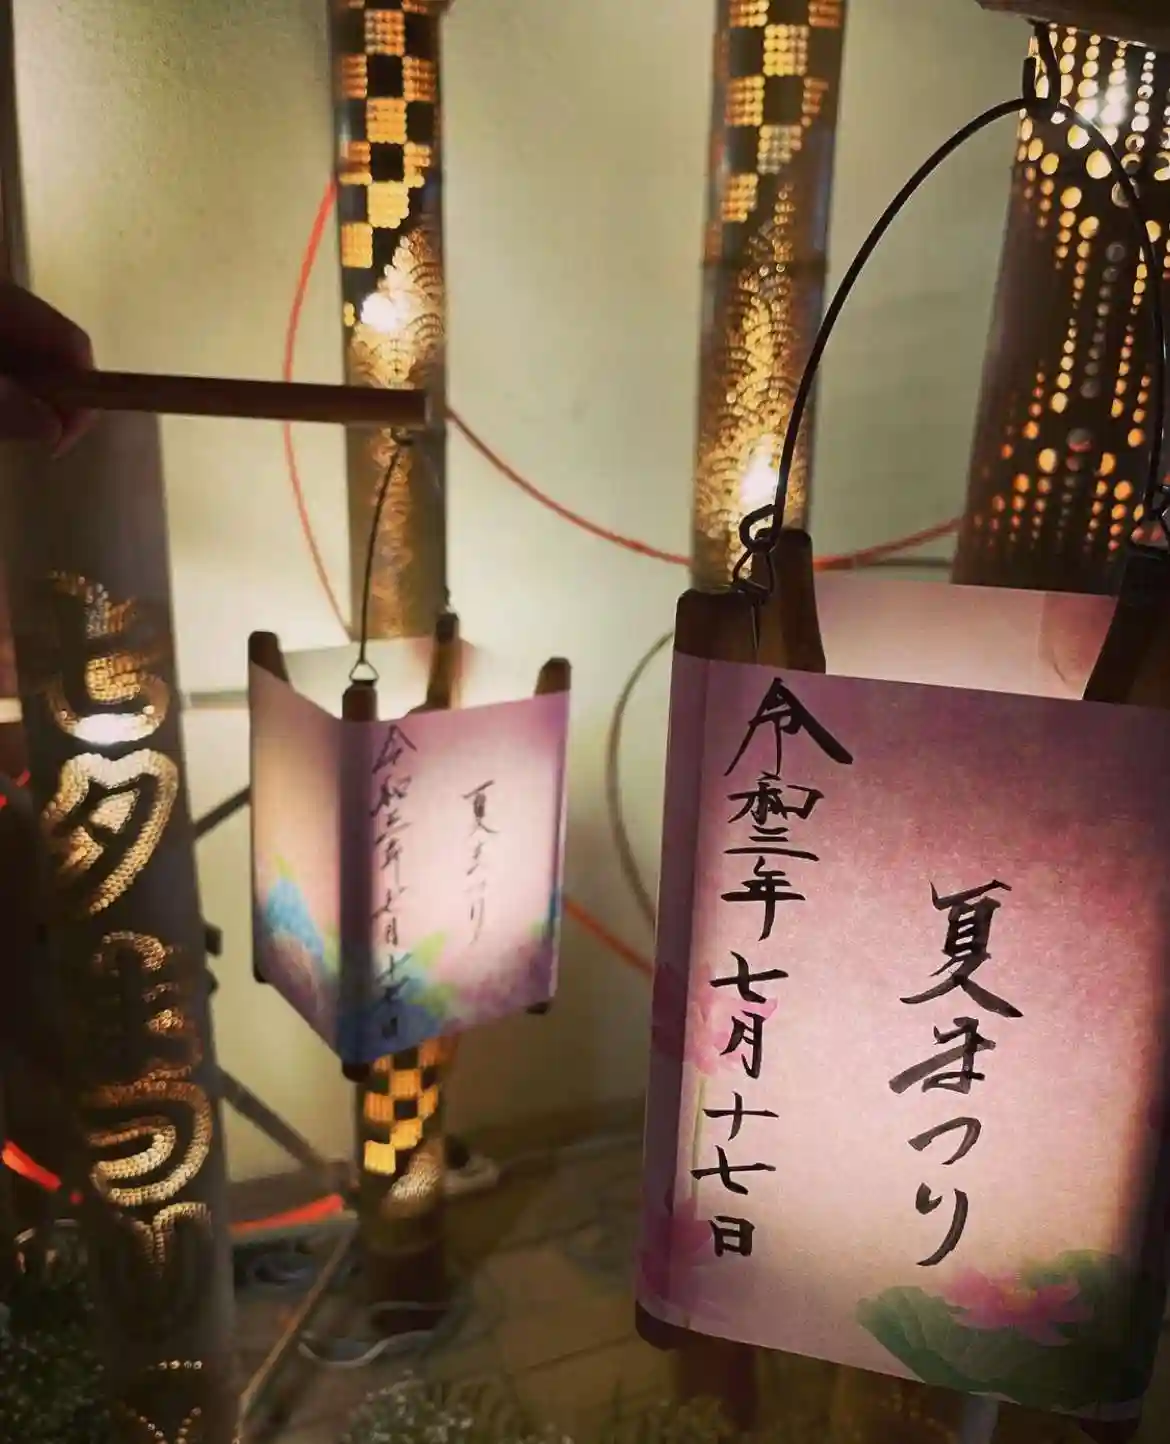 夏まつり
令和三年七月十七日
夏まつり
令和三年七月十七日
七夕まつり